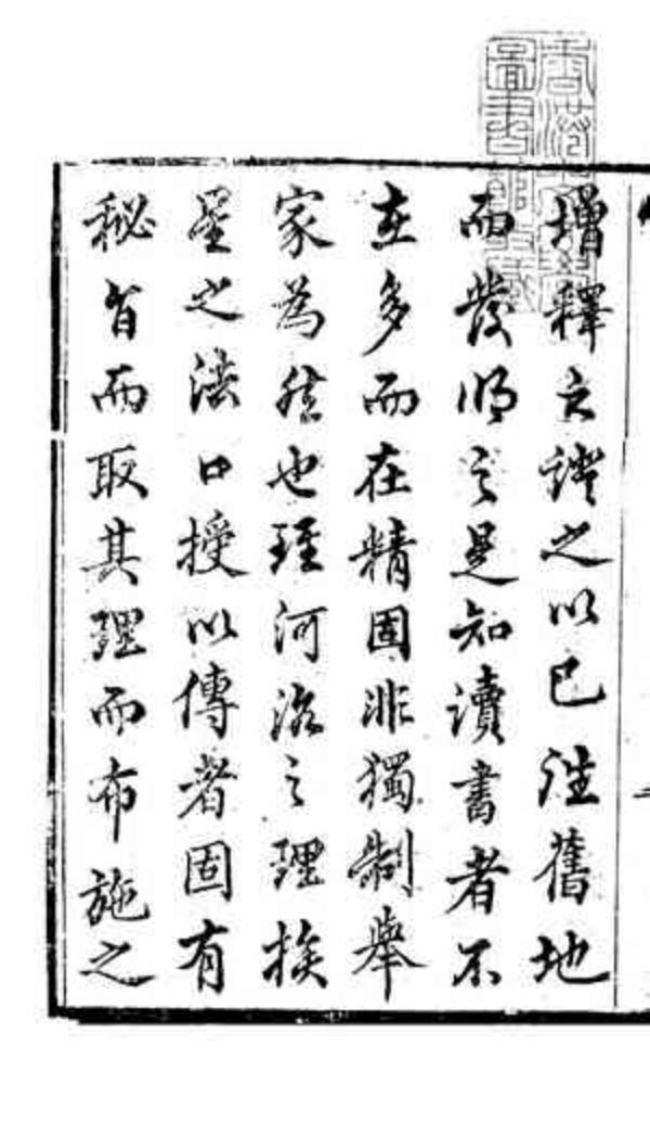 增釋又證之以已往舊地
而發明之是知讀書者不
在多而在精固非獨制舉
家為然也河洛之理挨
星之法口授以傳者固有
秘旨而取其理而布施之